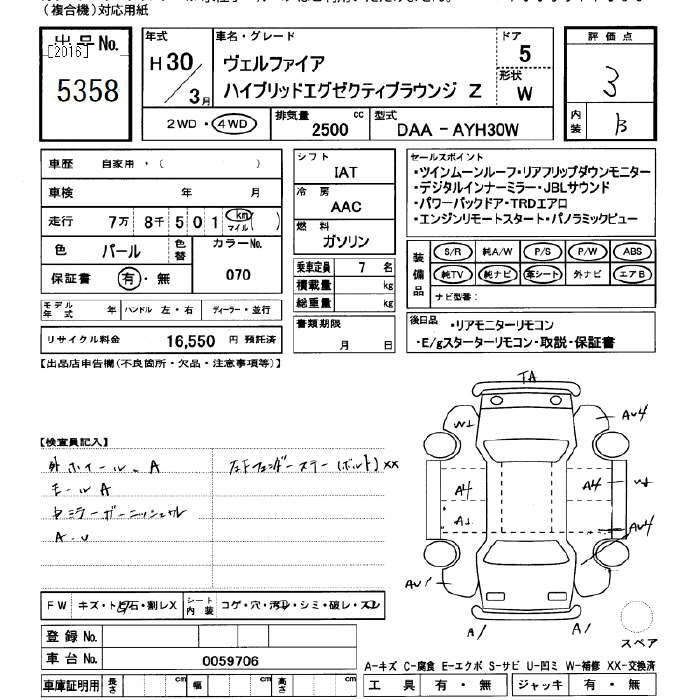 (複合機)対応用紙
出品No.
[2016]
5358
年式
H30/3月
車名・グレード
ヴェルファイア
ハイブリッドエグゼクティブラウンジ Z
ドア
5
形状
W
評価点
3
内装
B
2WD・4WD
排気量
2500
cc
型式
DAA-AYH30W
車歴 自家用・( )
車検 年 月
走行 7万 8千 501 km マイル ( )
色 パール 色替 カラーNo.
保証書 有・無 070
モデル年式 年 ハンドル 左・右 ディーラー・並行
リサイクル料金 16,550 円 預託済
シフト
IAT
冷房
AAC
燃料
ガソリン
乗車定員 7 名
積載量 kg
総重量 kg
書類期限
月 日
セールスポイント
・ツインムーンルーフ・リアフリップダウンモニター
・デジタルインナーミラー・JBLサウンド
・パワーバックドア・TRDエアロ
・エンジンリモートスタート・パノラミックビュー
装備品
S/R 純A/W P/S P/W ABS
純TV 純ナビ 革シート 外ナビ エアB
ナビ型番:
後日品
・リアモニターリモコン
・E/gスターターリモコン・取説・保証書
【出品店申告欄(不良箇所・欠品・注意事項等)】
【検査員記入】
外ホイール、A
モールA
A・U
XX
TA
W1
AU4
A4
A4
A1
AU4
AU1
A1
A1
スペア
FW キズ・ト石・割レX
シート内装 コゲ・穴・汚レ・シミ・破レ・スレ
登録No.
車台No. 0059706
車庫証明用 長さ cm 幅 cm 高さ cm
A-キズ C-腐食 E-エクボ S-サビ U-凹ミ W-補修 XX-交換済
工具 有・無 ジャッキ 有・無